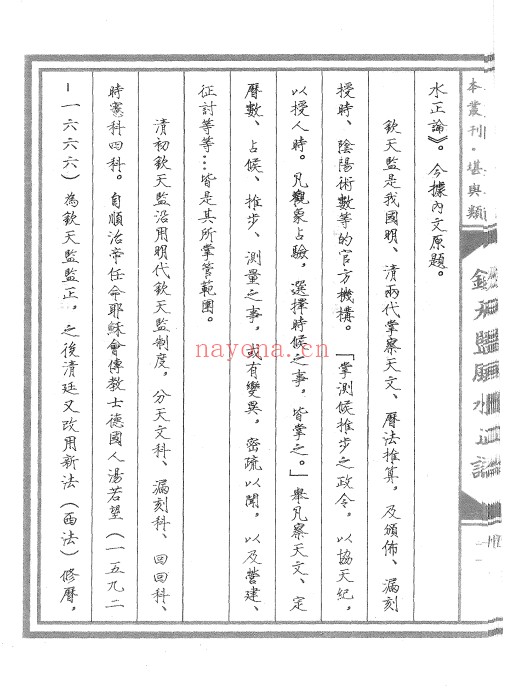 本叢刊·堪輿類
水正論》。今據內文原題。
欽天監是我國明、清兩代掌察天文、曆法推算，及頒佈、漏刻
授時、陰陽術數等的官方機構。「掌測候推步之政令，以協天紀，
以授人時。凡觀象占驗，選擇時候之事，皆掌之。」舉凡察天文、定
曆數、占候、推步、測量之事，或有變異，密疏以聞，以及營建、
征討等等…皆是其所掌管範圍。
清初欽天監沿用明代欽天監制度，分天文科、漏刻科、回回科、
時憲科四科。自順治帝任命耶穌會傳教士德國人湯若望（一五九二
－一六六六）為欽天監監正，之後清廷又改用新法（西法）修曆，
nayona.cn